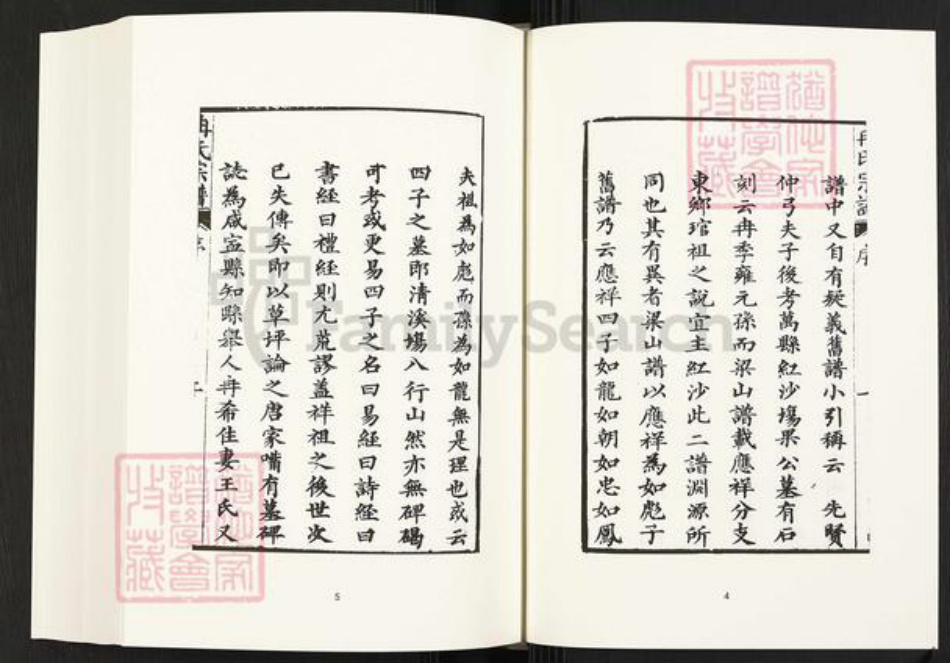 冉氏宗譜
序
一
譜中又自有疑義舊譜小引稱云　先賢
仲弓夫子後考萬縣紅沙塲果公墓有石
刻云冉季雍元孫而梁山譜載應祥分支
東鄉琯祖之說宜主紅沙此二譜淵源所
同也其有異者梁山譜以應祥為如彪子
舊譜乃云應祥四子如龍如朝如忠如鳳
4
夫祖為如彪而孫為如龍無是理也或云
四子之墓即清溪塲八行山然亦無碑碣
可考或更易四子之名曰易經曰詩經曰
書經曰禮經則尤荒謬蓋祥祖之後世次
已失傳矣即以草坪論之唐家嘴有墓碑
誌為咸寍縣知縣舉人冉希佳妻王氏又
冉氏宗譜
序
5
猶他家
譜學會
收藏
猶他家
譜學會
收藏
FamilySearch